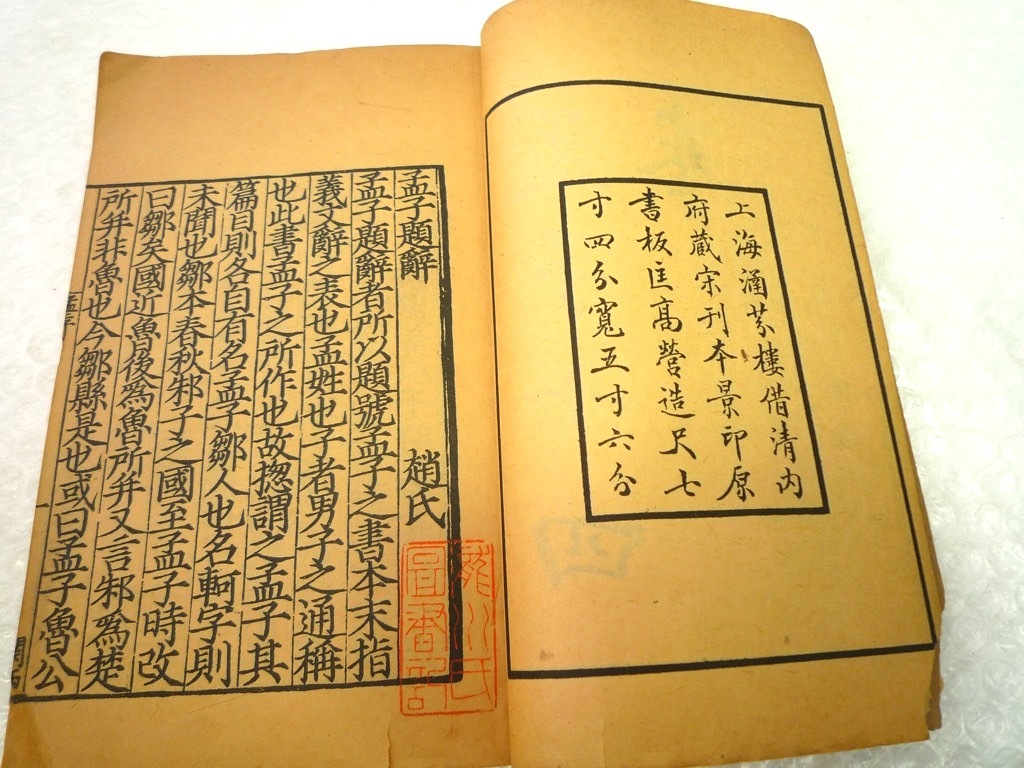 上海涵芬樓借清内
府藏宋刊本景印原
書板匡髙營造尺七
寸四分寬五寸六分
孟子題辭
趙氏
孟子題辭者所以題號孟子之書本末指
義文辭之表也孟姓也子者男子之通稱
也此書孟子之所作也故揔謂之孟子其
篇目則各自有名孟子鄒人也名軻字則
未聞也鄒本春秋邾子之國至孟子時改
曰鄒矣國近魯後爲魯所并又言邾爲楚
所并非魯也今鄒縣是也或曰孟子魯公
圖書記